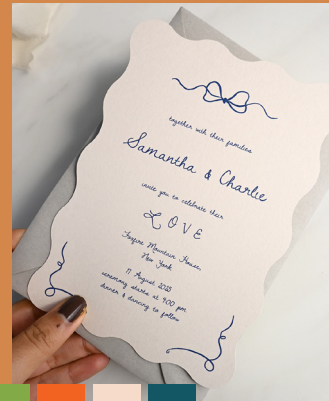 together with their families
Samantha & Charlie
invite you to celebrate their
LOVE
Mountain House,
New York
11 August
ceremony starts at 4:00 pm
dinner & dancing to follow